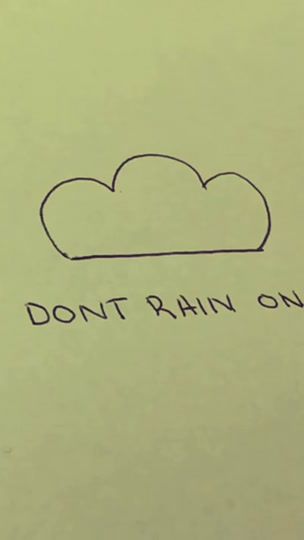 DONT RAIN ON